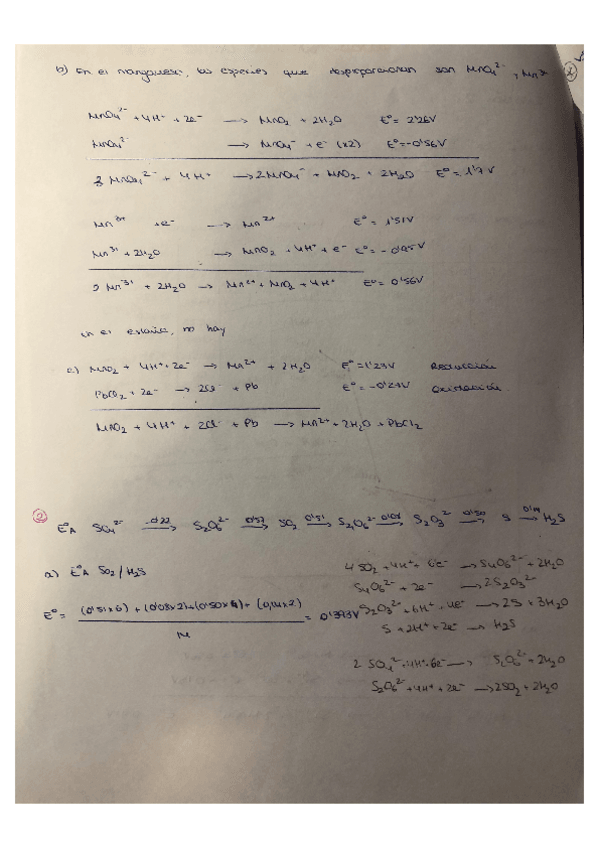 b) En el manganeso, las especies que desproporcionan son MnO₄²⁻, Mn³⁺
MnO₄²⁻ + 4H⁺ + 2e⁻ → MnO₂ + 2H₂O E° = 2'26V
MnO₄²⁻ → MnO₄⁻ + e⁻ (x2) E° = -0'56V
3 MnO₄²⁻ + 4H⁺ → 2MnO₄⁻ + MnO₂ + 2H₂O E° = 1'7V
Mn³⁺ + e⁻ → Mn²⁺ E° = 1'51V
Mn³⁺ + 2H₂O → MnO₂ + 4H⁺ + e⁻ E° = -0'95V
2 Mn³⁺ + 2H₂O → Mn²⁺ + MnO₂ + 4H⁺ E° = 0'56V
En el estaño, no hay
c) MnO₂ + 4H⁺ + 2e⁻ → Mn²⁺ + 2H₂O E° = 1'23V Reducción
PbCl₂ + 2e⁻ → 2Cl⁻ + Pb E° = -0'27V Oxidación
MnO₂ + 4H⁺ + 2Cl⁻ + Pb → Mn²⁺ + 2H₂O + PbCl₂
② E°A SO₄²⁻ -0'22→ S₂O₆²⁻ 0'57→ SO₂ 0'51→ S₄O₆²⁻ 0'08→ S₂O₃²⁻ 0'50→ S 0'14→ H₂S
a) E°A SO₂/H₂S
4 SO₂ + 4H⁺ + 6e⁻ → S₄O₆²⁻ + 2H₂O
S₄O₆²⁻ + 2e⁻ → 2S₂O₃²⁻
E° = (0'51x6) + (0'08x2) + (0'50x4) + (0,14x2) / 14 = 0'393V
S₂O₃²⁻ + 6H⁺ + 4e⁻ → 2S + 3H₂O
S + 2H⁺ + 2e⁻ → H₂S
2 SO₄²⁻ + 4H⁺ + 6e⁻ → S₂O₆²⁻ + 2H₂O
S₂O₆²⁻ + 4H⁺ + 2e⁻ → 2SO₂ + 2H₂O